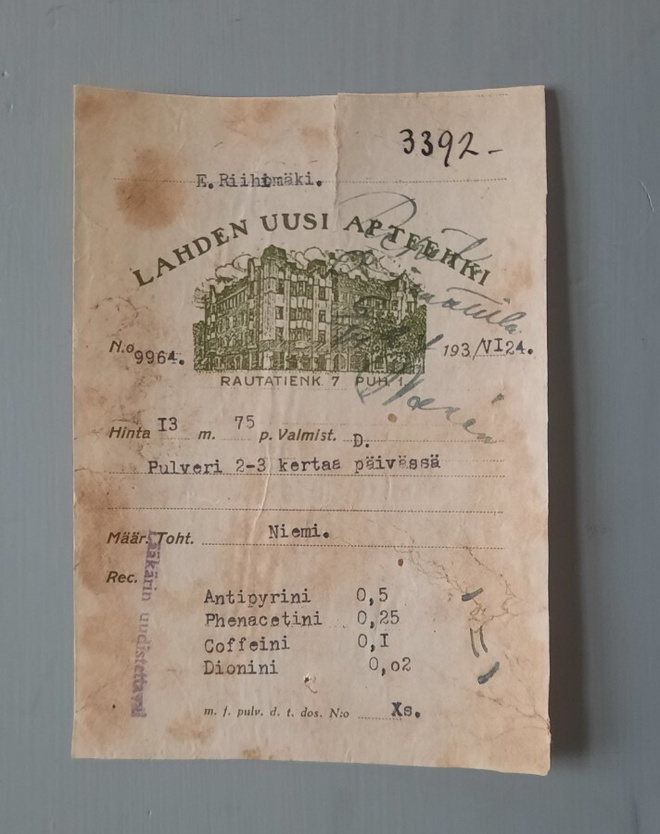 3392-
E. Riihimäki.
LAHDEN UUSI APTEEKKI
N:o 9964. 193 /VI24.
RAUTATIENK. 7 PUH. 1
Hinta I3 m. 75 p. Valmist. D.
Pulveri 2-3 kertaa päivässä
Määr. Toht. Niemi.
Rec.
Lääkärin uudistettava
Antipyrini 0,5
Phenacetini 0,25
Coffeini 0,I
Dionini 0,o2
m. f. pulv. d. t. dos. N:o Xs.